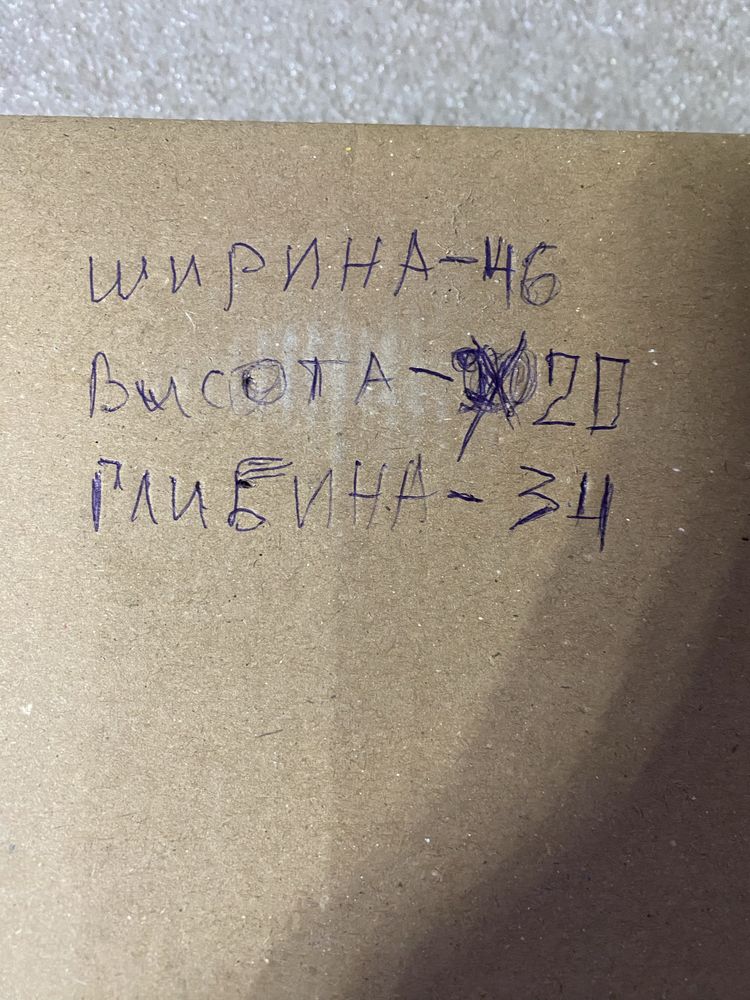 ШИРИНА-46
ВЫСОТА-20
ГЛИБИНА-34